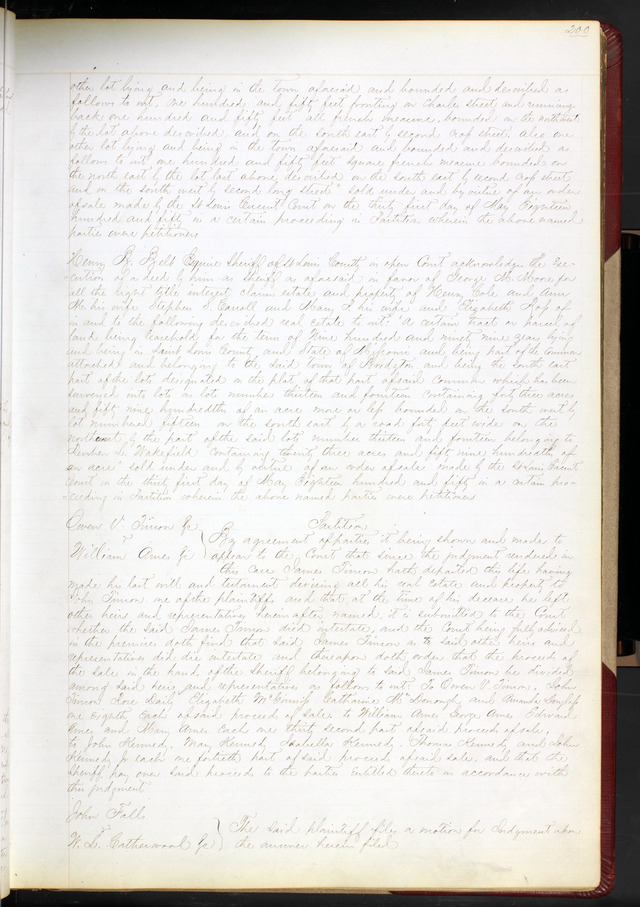 200
other lot lying and being in the town aforesaid and bounded and described as
follows to wit, One hundred and fifty feet fronting on Charles street and running
back one hundred and fifty feet all french measure, bounded on the north west
by the lot above described, and on the south east by second cross street, also one
other lot lying and being in the town aforesaid and bounded and described as
follows to wit one hundred and fifty feet square french measure bounded on
the north east by the lot last above described on the south east by second cross street
and on the south west by second long street" sold under and by virtue of an order
of sale made by the St Louis Circuit Court on the thirty first day of May Eighteen
hundred and fifty in a certain proceeding in Partition wherein the above named
parties were petitioners
Henry B. Belt Esquire Sheriff of St Louis County in open Court acknowledges the Exe-
cution of a deed by him as sheriff as aforesaid in favor of George M. Moore for
all the right title interest claim estate and property of Henry Cole and Ann
M. his wife Stephen S. Carroll and Mary his wife and Elizabeth of
in and to the following described real estate to wit: "A certain tract or parcel of
land being leasehold for the term of Nine hundred and ninety nine years lying
and being in Saint Louis County and State of Missouri and being part of the common
attached and belonging to the said town of and being the south east
part of the lots designated on the plat of that part of said common which has been
surveyed into lots as lot number thirteen and fourteen containing forty three acres
and fifty nine hundredths of an acre more or less bounded on the south west by
lot numbered fifteen on the south east by a road forty feet wide on the
north west by the part of the said lots number thirteen and fourteen belonging to
Wakefield containing twenty three acres and fifty nine hundredths of
an acre" sold under and by virtue of an order of sale made by the St Louis Circuit
Court on the thirty first day of May Eighteen hundred and fifty in a certain pro-
ceeding in Partition wherein the above named parties were petitioners
Owen V. Timon &c Partition
vs By agreement of parties it being shown and made to
William Ames &c appear to the Court that since the judgment rendered in
this case James Timon hath departed this life having
made his last will and testament devising all his real estate and property to
John Timon one of the plaintiffs and that at the time of his decease he left
other heirs and representatives hereinafter named, it is submitted to the Court
whether the said James Timon died intestate, and the Court being fully advised
in the premises doth find, that said James Timon as to said other heirs and
representatives did die intestate and thereupon doth order that the proceeds of
the sale in the hands of the Sheriff belonging to said James Timon be divided
among said heirs and representatives as follows to wit: To Owen V. Timon, John
Timon Rose Daily Elizabeth Catharine McDonough and Amanda
one eighth each of said proceeds of sale, to William Ames George Ames Edward
Ames and Mary Ames each one thirty second part of said proceeds of sale,
to John Kennedy, Mary Kennedy Isabella Kennedy, Thomas Kennedy and John
Kennedy Jr each one fortieth part of said proceeds of said sale, and that the
Sheriff pay over said proceeds to the parties entitled thereto in accordance with
this judgment
John Falls
vs The said plaintiff files a motion for Judgment upon
W. L. Catherwood &c the answer herein filed